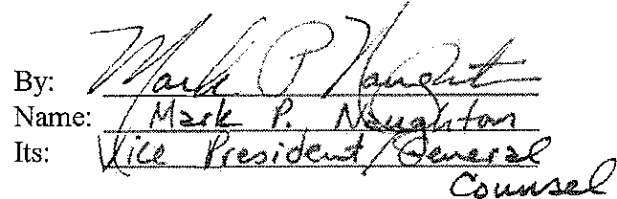 By: Mark P Naughton
Name: Mark P. Naughton
Its: Vice President/General
Counsel